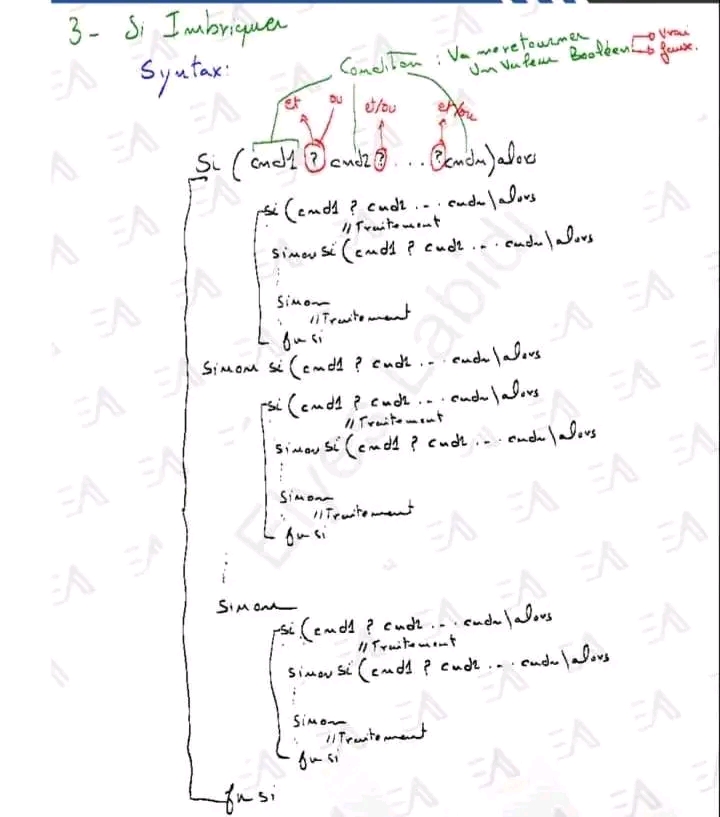 3 - Si Imbriquer
Syntax:
Condition : Va me retourner
Un Valeur Booléen
Vrai
faux.
et ou et/ou et/ou
Si (cmd1 ? cmd2 ? ... ? cmdn) alors
si (cmd1 ? cmd2 ... cmdn) alors
// Traitement
sinon si (cmd1 ? cmd2 ... cmdn) alors
sinon
// Traitement
fin si
Sinon si (cmd1 ? cmd2 ... cmdn) alors
si (cmd1 ? cmd2 ... cmdn) alors
// Traitement
sinon si (cmd1 ? cmd2 ... cmdn) alors
sinon
// Traitement
fin si
Sinon
si (cmd1 ? cmd2 ... cmdn) alors
// Traitement
sinon si (cmd1 ? cmd2 ... cmdn) alors
sinon
// Traitement
fin si
fin si